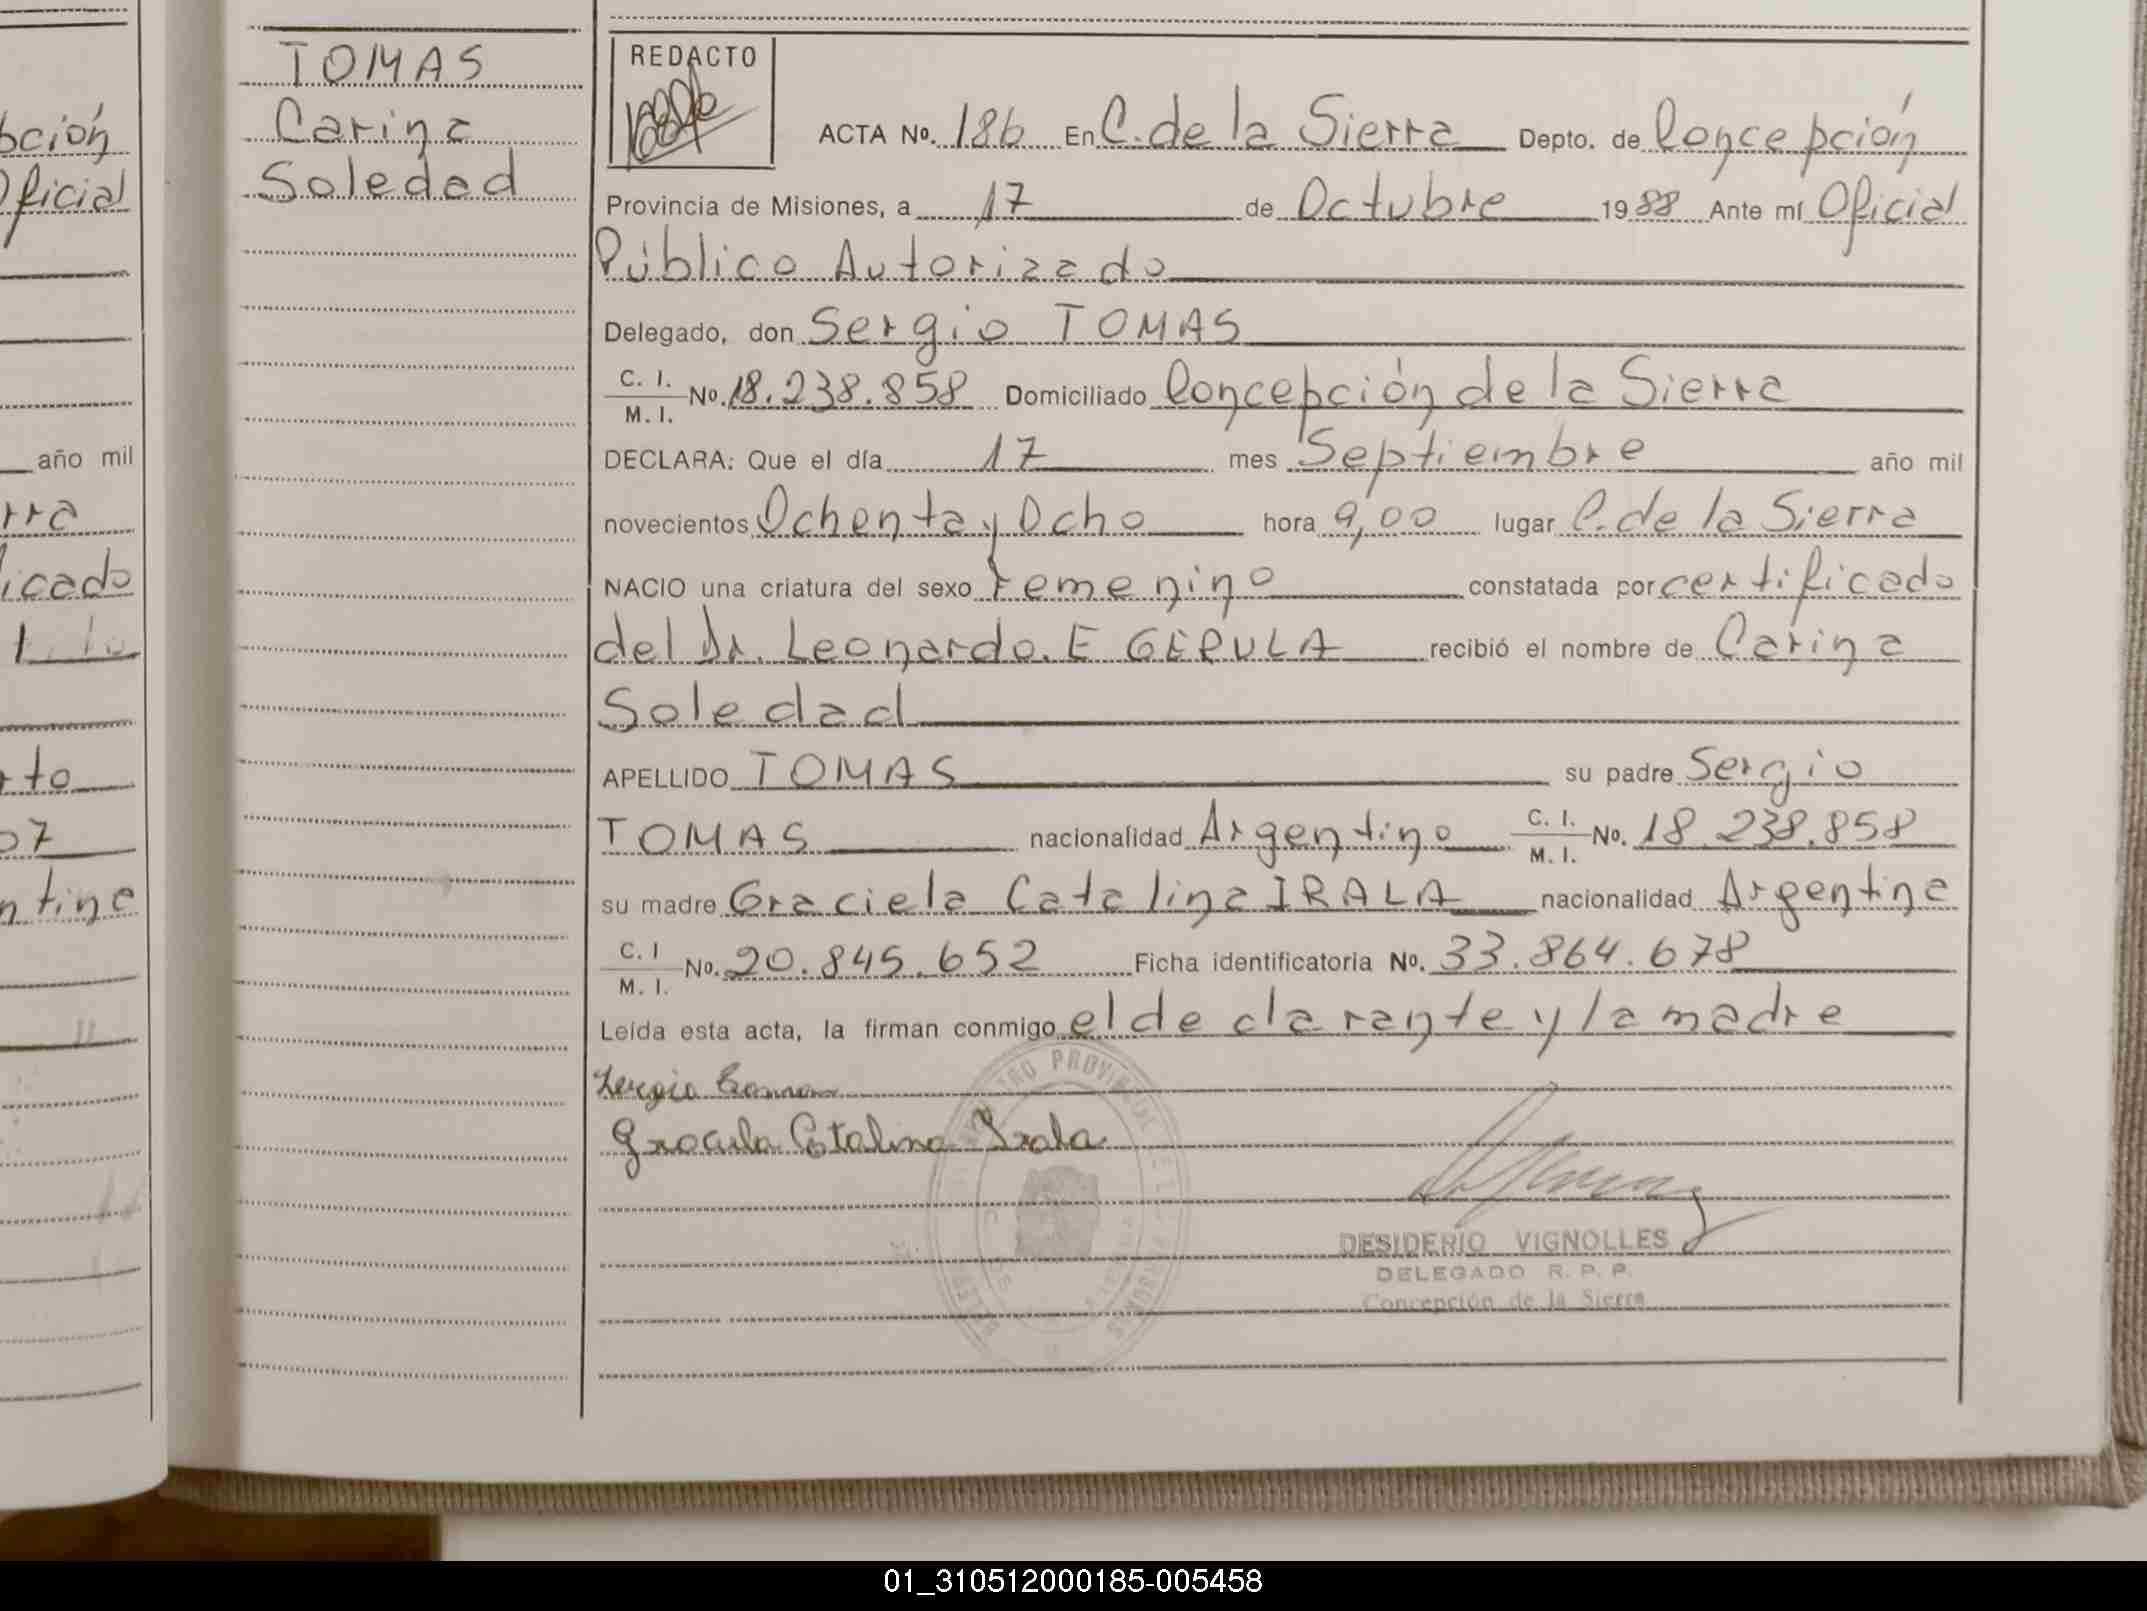 TOMAS
Carina
Soledad
bción
Oficial
año mil
rra
icado
rto
07
ntina
REDACTO
ACTA Nº. 186 En C. de la Sierra Depto. de Concepción
Provincia de Misiones, a 17 de Octubre 1988 Ante mí Oficial
Público Autorizado
Delegado, don Sergio TOMAS
C. I.
M. I. Nº. 18.238.858 Domiciliado Concepción de la Sierra
DECLARA: Que el día 17 mes Septiembre año mil
novecientos Ochenta y Ocho hora 9,00 lugar C. de la Sierra
NACIO una criatura del sexo Femenino constatada por certificado
del Dr. Leonardo. E GERULA recibió el nombre de Carina
Soledad
APELLIDO TOMAS su padre Sergio
TOMAS nacionalidad Argentino C. I. M. I. Nº. 18.238.858
su madre Graciela Catalina IRALA nacionalidad Argentina
C. I
M. I. Nº. 20.845.652 Ficha identificatoria Nº. 33.864.678
Leída esta acta, la firman conmigo el declarante y la madre
Sergio Tomas
Graciela Catalina Irala
DESIDERIO VIGNOLLES
DELEGADO R. P. P.
Concepción de la Sierra
01_310512000185-005458